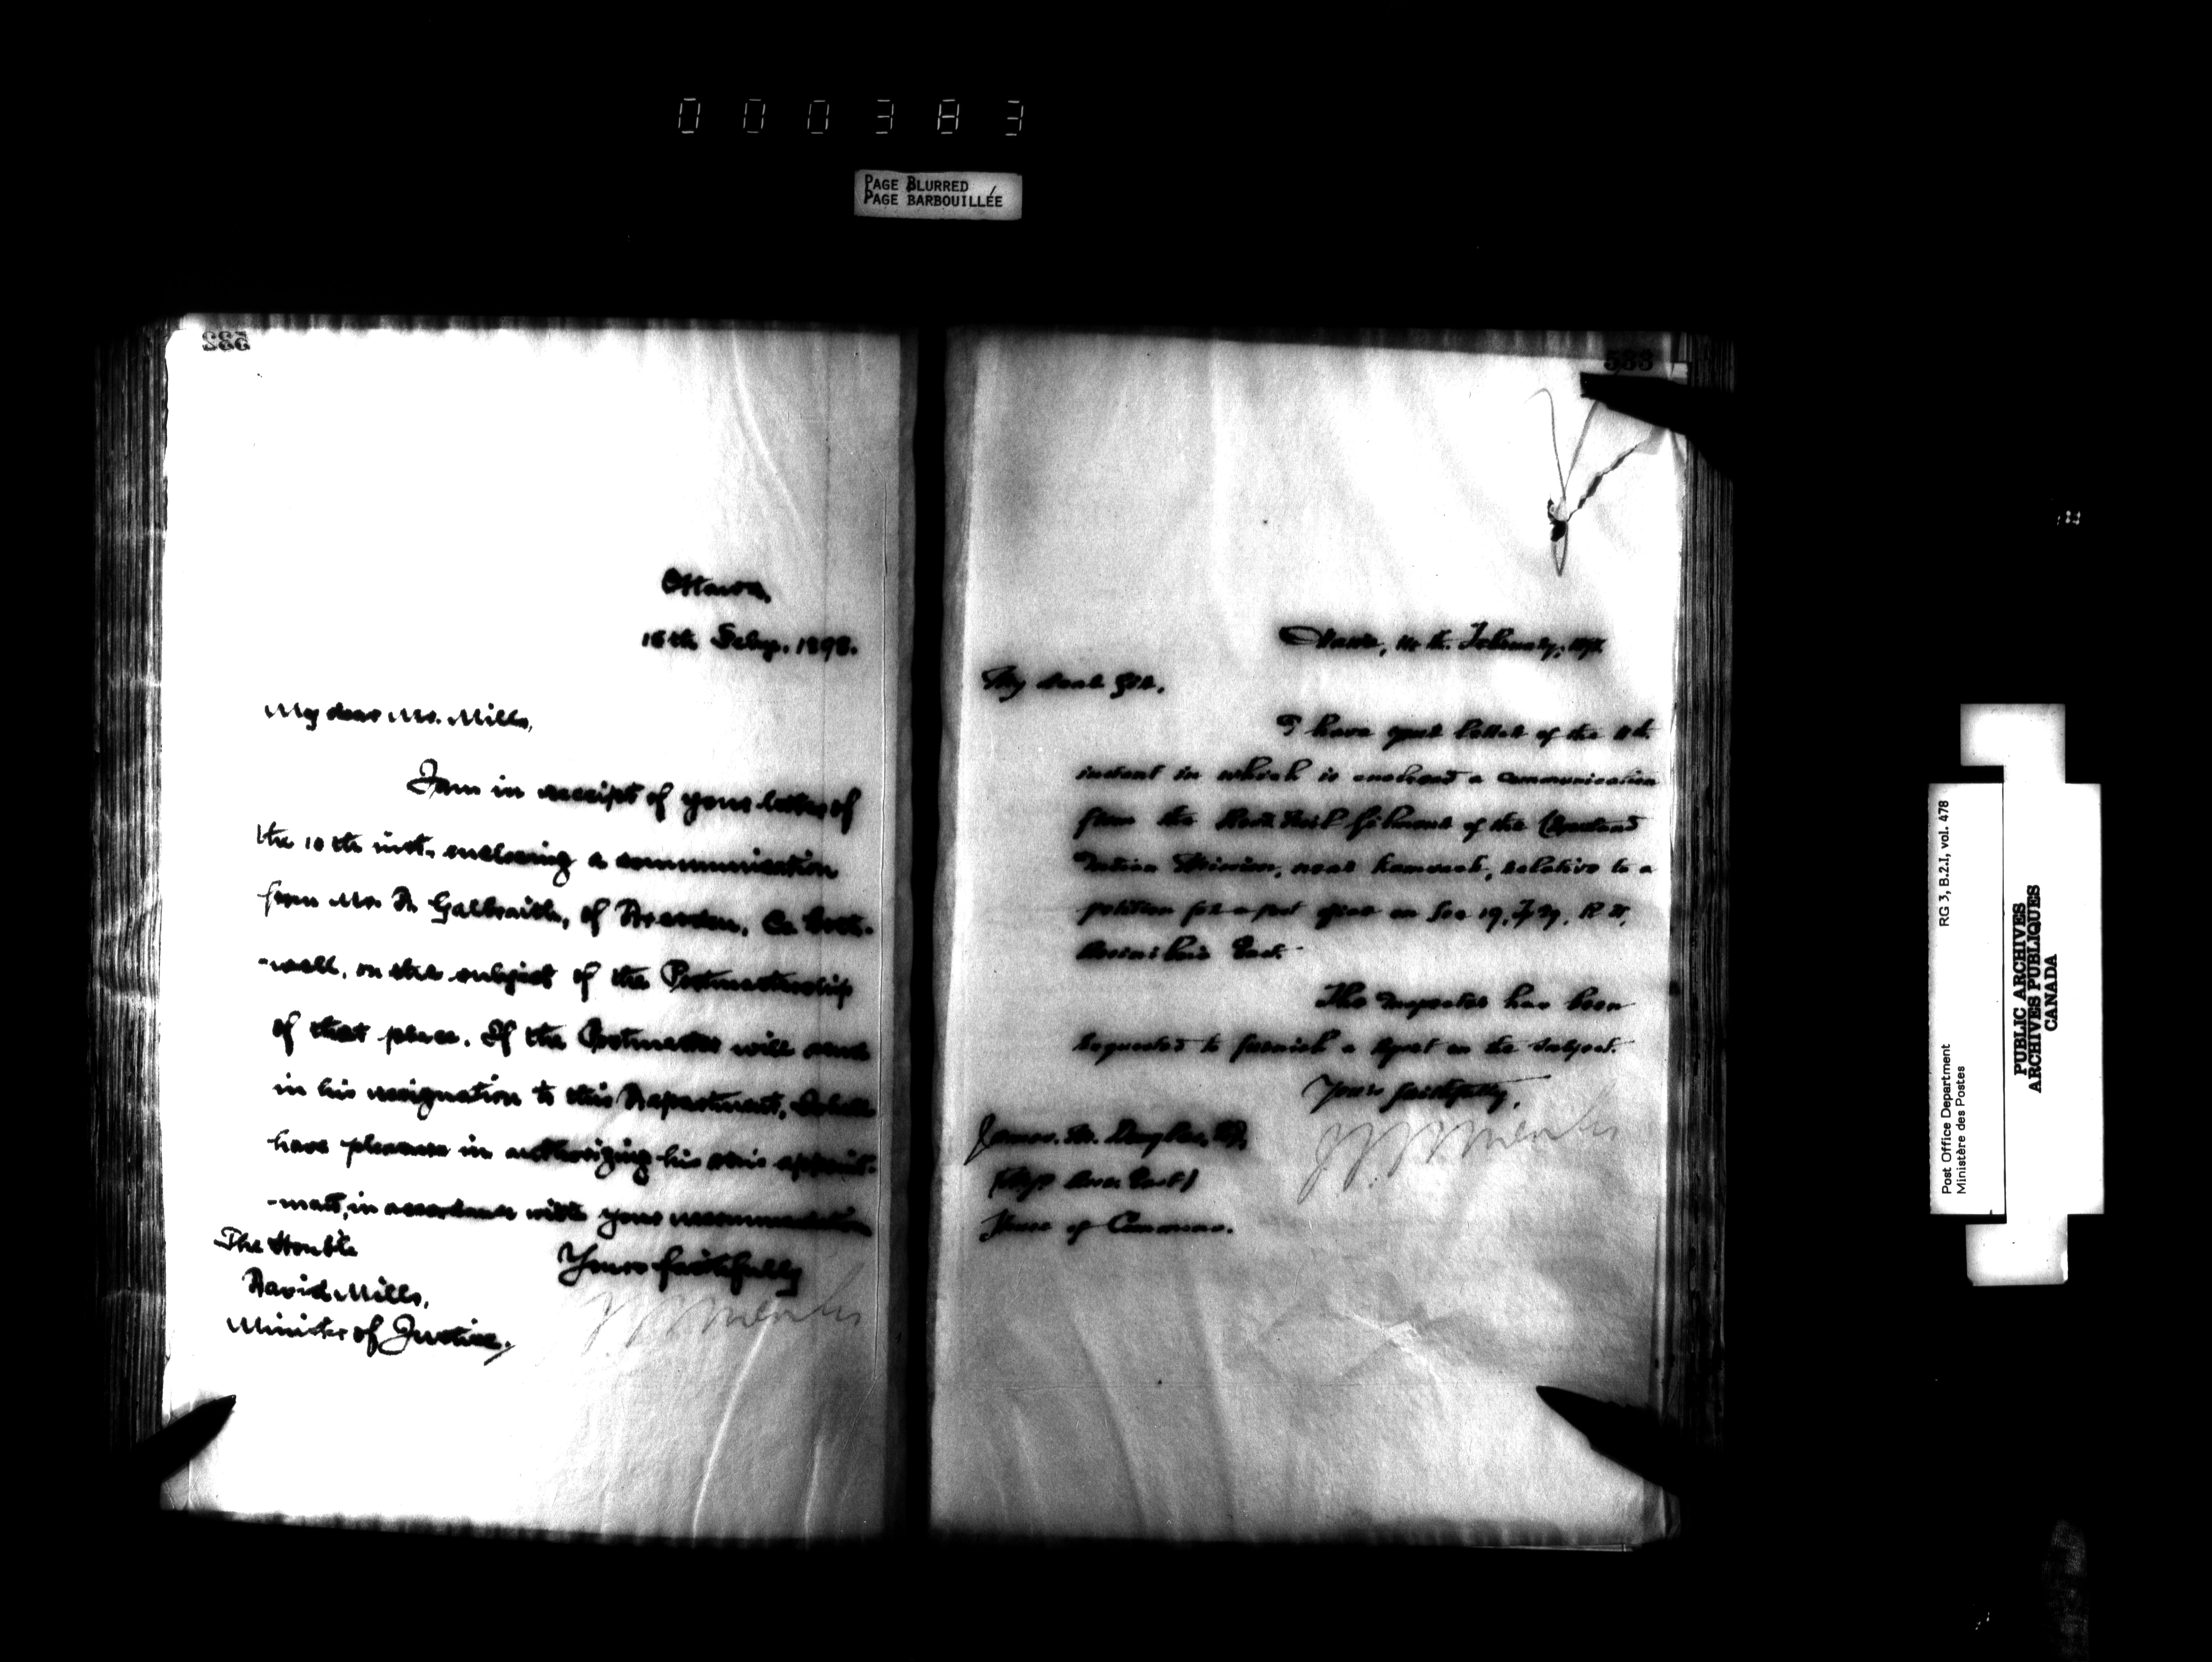 000383
PAGE BLURRED
PAGE BARBOUILLÉE
532
Ottawa,
My dear Mr. Mills,
I am in receipt of your letter of
the 10th inst. enclosing a communication
from Mr. Galbraith, of
-well, on the subject of the Postmastership
of that place. If the Postmaster will send
in his resignation to this Department, I shall
have pleasure in authorizing his son's appoint-
-ment, in accordance with your recommendation
Yours faithfully
The Honble
David Mills,
Minister of Justice.
533
Ottawa, February,
My dear Sir,
I have your letter of the
instant in which is enclosed a communication
from the of the
Indian Mission, near Kamsack, relative to a
petition for a post office on Sec 19,
East.
The Inspector has been
requested to furnish a report on the subject.
Yours faithfully,
James M. Douglas,
House of Commons.
Post Office Department
Ministère des Postes
RG 3, B.2.I, vol. 478
PUBLIC ARCHIVES
ARCHIVES PUBLIQUES
CANADA